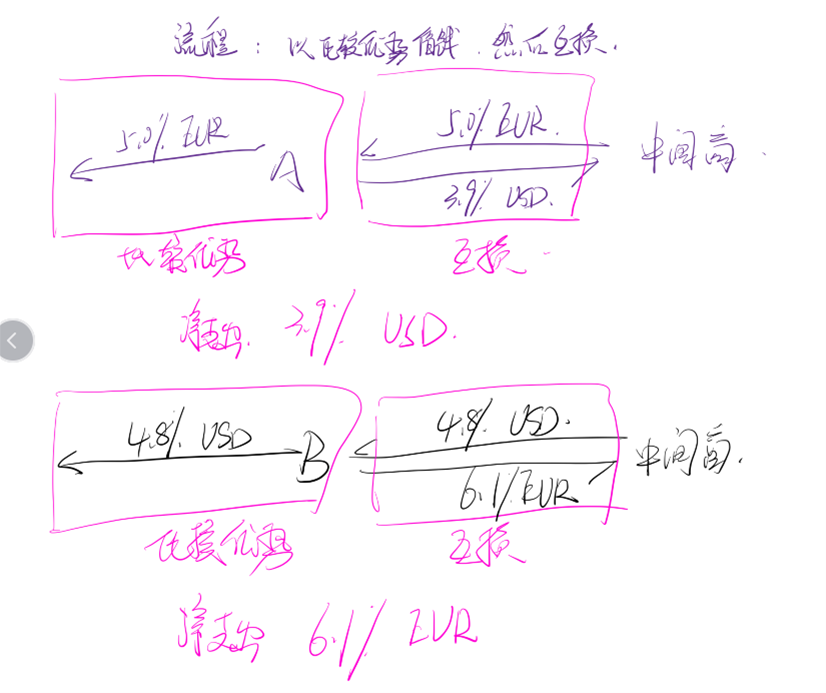 流程：以比较优势借钱．然后互换．
5.0% EUR
A
5.0% EUR.
3.9% USD.
中间商．
比较优势
互换
净支出 3.9% USD.
4.8% USD
B
4.8% USD.
6.1% EUR
中间商．
比较优势
互换
净支出 6.1% EUR